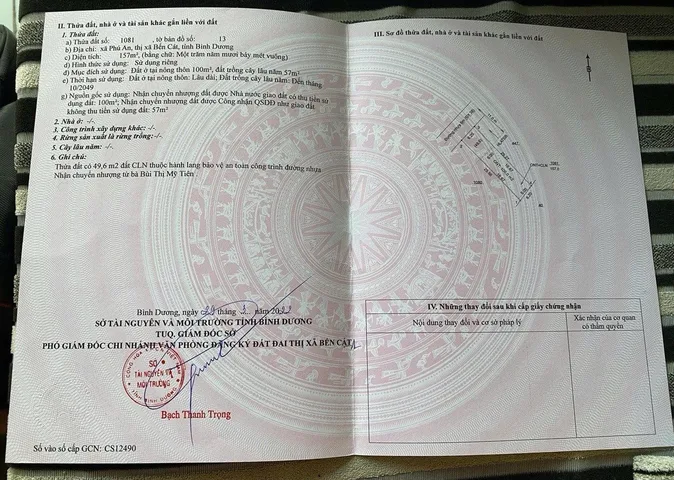 II. Thửa đất, nhà ở và tài sản khác gắn liền với đất
1. Thửa đất:
a) Thửa đất số: 1081 , tờ bản đồ số: 13
b) Địa chỉ: xã Phú An, thị xã Bến Cát, tỉnh Bình Dương
c) Diện tích: 157m², (bằng chữ: Một trăm năm mươi bảy mét vuông)
d) Hình thức sử dụng: Sử dụng riêng
đ) Mục đích sử dụng: Đất ở tại nông thôn 100m²; Đất trồng cây lâu năm 57m²
e) Thời hạn sử dụng: Đất ở tại nông thôn: Lâu dài; Đất trồng cây lâu năm: Đến tháng
10/2049
g) Nguồn gốc sử dụng: Nhận chuyển nhượng đất được Nhà nước giao đất có thu tiền sử
dụng đất: 100m²; Nhận chuyển nhượng đất được Công nhận QSDĐ như giao đất
không thu tiền sử dụng đất: 57m²
2. Nhà ở: -/-.
3. Công trình xây dựng khác: -/-.
4. Rừng sản xuất là rừng trồng: -/-.
5. Cây lâu năm: -/-.
6. Ghi chú:
Thửa đất có 49,6 m2 đất CLN thuộc hành lang bảo vệ an toàn công trình đường nhựa
Nhận chuyển nhượng từ bà Bùi Thị Mỹ Tiên
Bình Dương, ngày tháng năm
SỞ TÀI NGUYÊN VÀ MÔI TRƯỜNG TỈNH BÌNH DƯƠNG
TUQ. GIÁM ĐỐC SỞ
PHÓ GIÁM ĐỐC CHI NHÁNH VĂN PHÒNG ĐĂNG KÝ ĐẤT ĐAI THỊ XÃ BẾN CÁT
SỞ
TÀI NGUYÊN VÀ
MÔI TRƯỜNG
TỈNH BÌNH DƯƠNG
Bạch Thanh Trọng
Số vào sổ cấp GCN: CS12490
III. Sơ đồ thửa đất, nhà ở và tài sản khác gắn liền với đất
1081
157.0
1080
IV. Những thay đổi sau khi cấp giấy chứng nhận
Nội dung thay đổi và cơ sở pháp lý
Xác nhận của cơ quan
có thẩm quyền